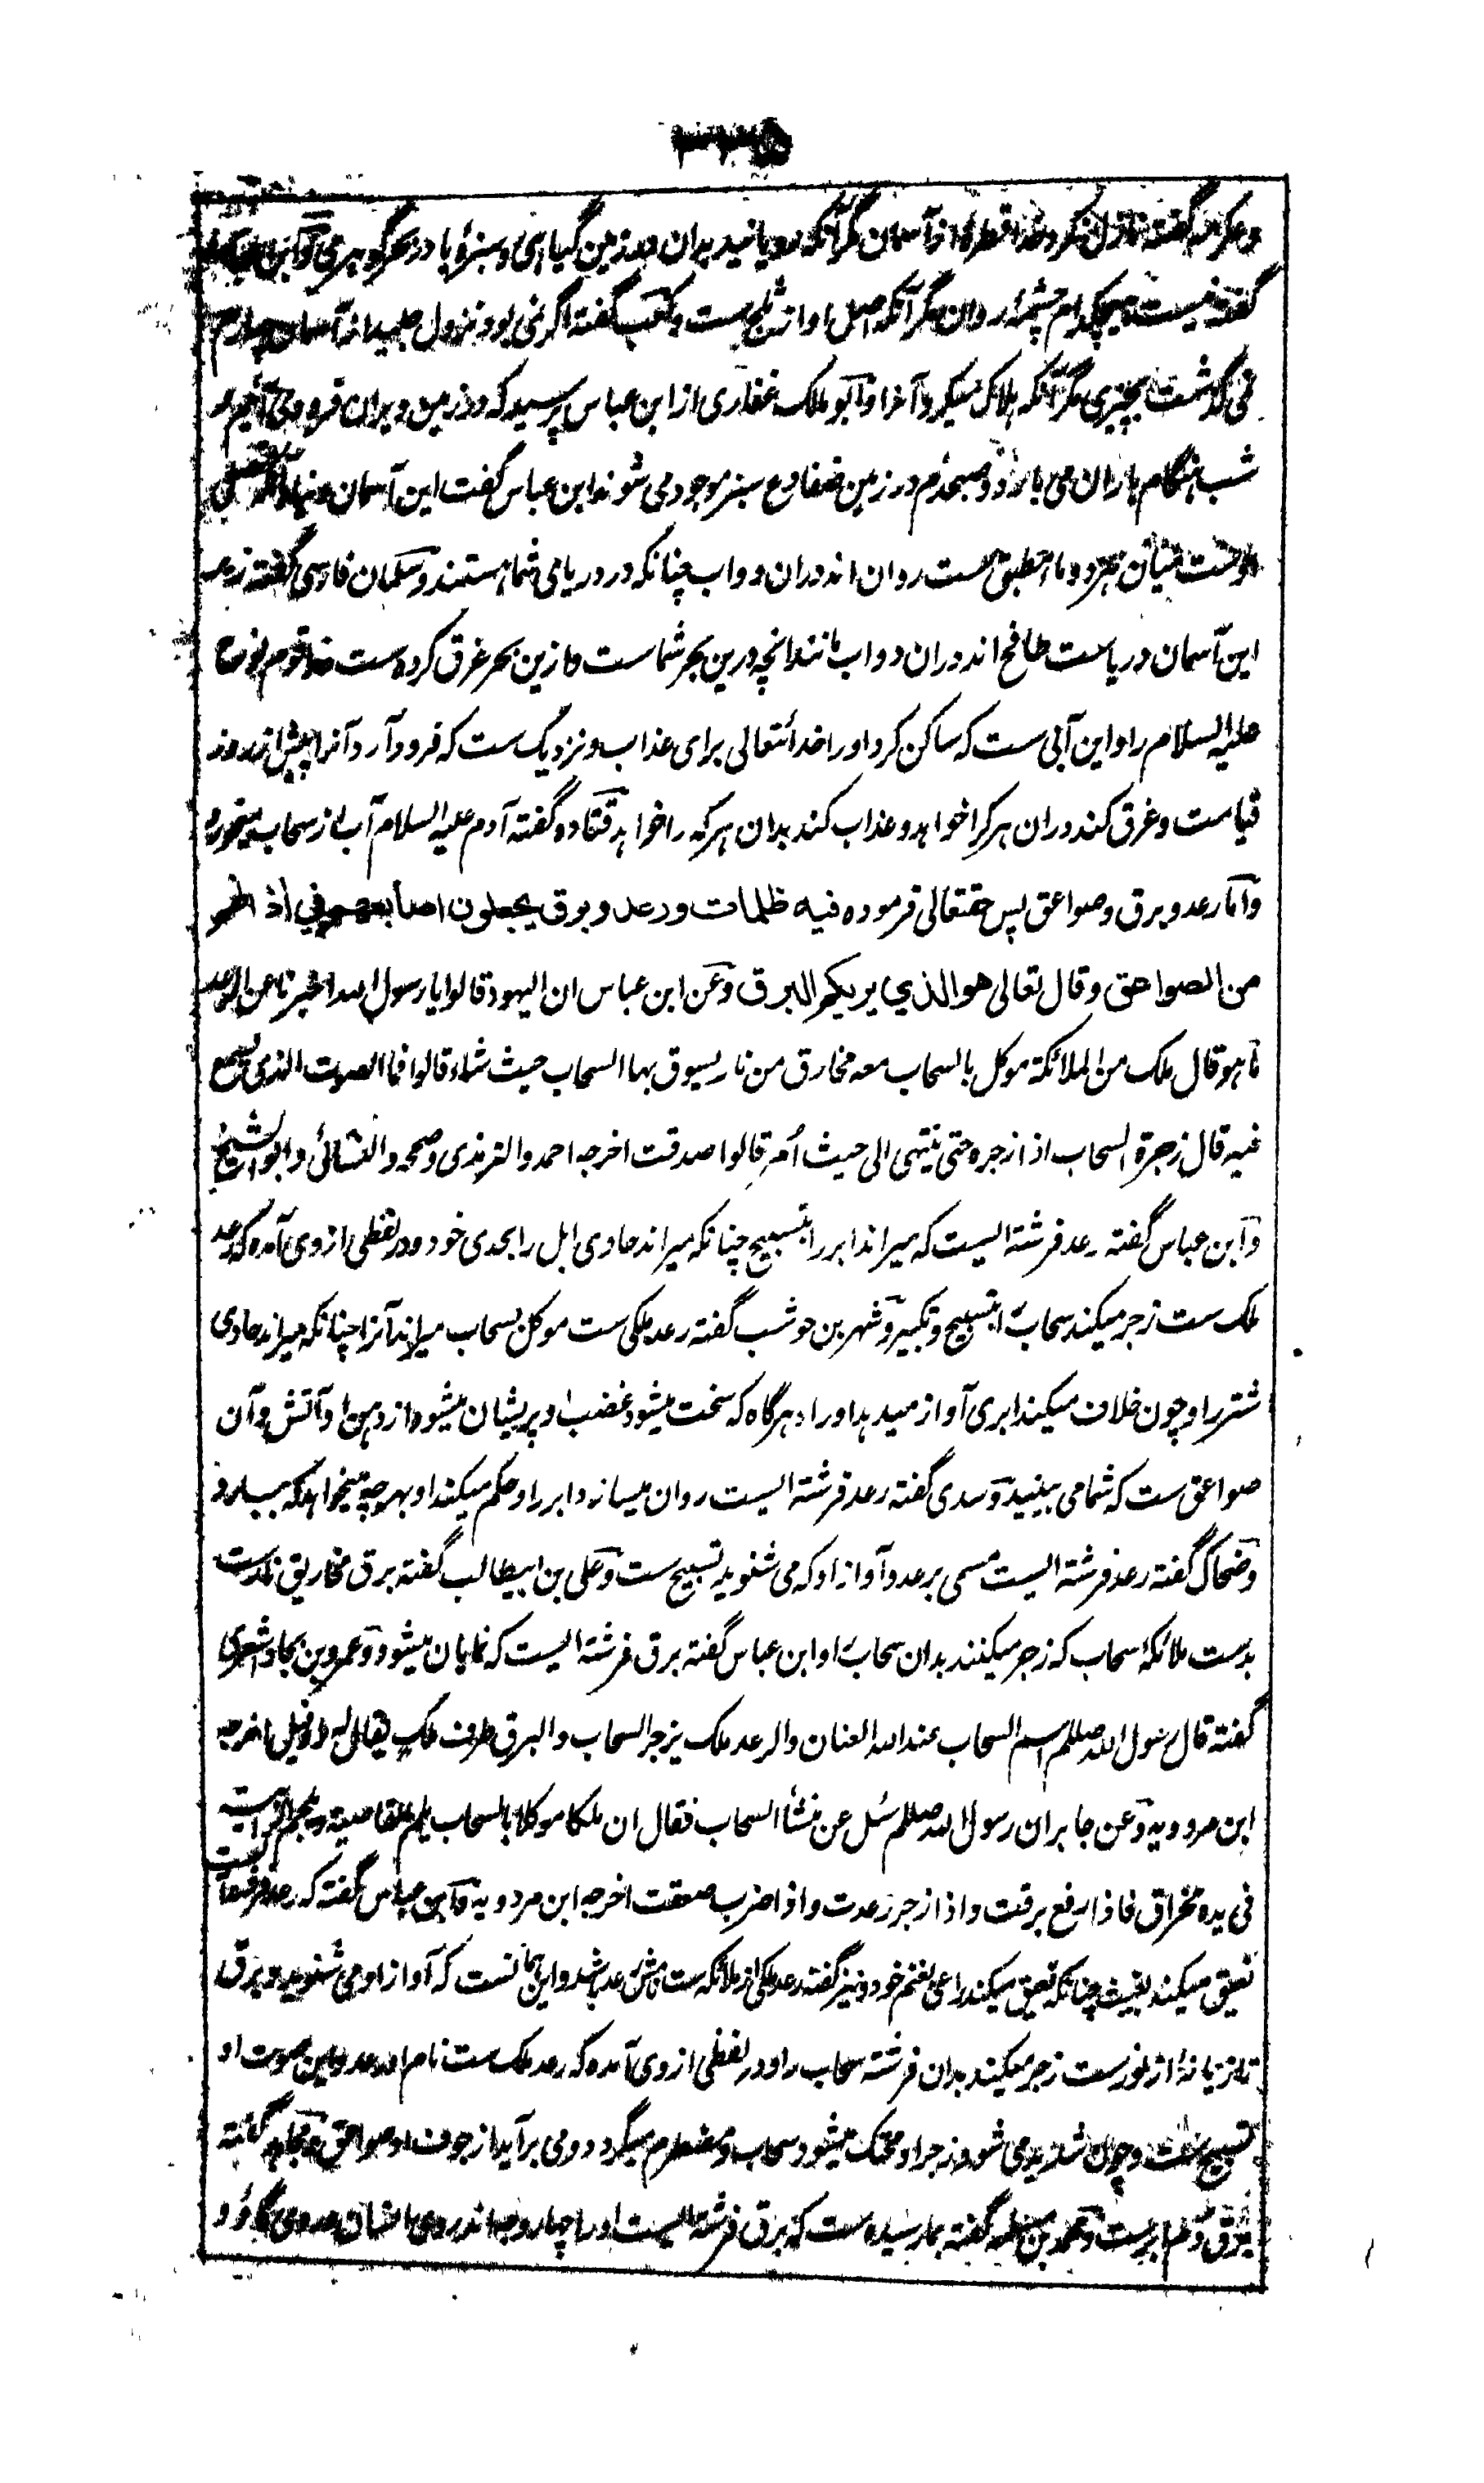 ۳۳۵
وعکرمه گفته نازل نکرد خدا قطرهٔ از آسمان مگر آنکه رویانید بدان در زمین گیاهی و سبزهٔ یا در بحر گوهری
گفته نیست هیچکدام چشمهٔ روان مگر آنکه اصل او از ثلج ست وکعب گفته اگر نمی بود نزول جلید از آسمان چهارم
نمی گذشت بچیزی مگر آنکه هلاک میکرد آنرا وابو مالک غفاری از ابن عباس پرسید که در زمین ویران فرود می آئیم
شب هنگام باران می بارد وصبحدم در زمین ضفادع سبز موجود می شوند ابن عباس گفت این آسمان دنیا
اوست میان هر دو ما مطبق ست روان اند دران دواب چنانکه در دریاهای شما هستند وسلمان فارسی گفته زیر
این آسمان دریاست طافح اند دران دواب مانند انچه درین بحر شماست وازین بحر غرق کرده ست خدا قوم نوح
علیه السلام را واین آبی ست که ساکن کرد اورا خدائتعالی برای عذاب ونزدیک ست که فرود آرد آنرا پیش از روز
قیامت وغرق کند دران هر کرا خواهد وعذاب کند بدان هر که را خواهد قتاده گفته آدم علیه السلام آب از سحاب میخورد
واما رعد وبرق وصواعق پس حقتعالی فرموده فیه ظلمات ورعد وبرق یجعلون اصابعهم في اذانهم
من الصواعق وقال تعالی هو الذي یریکم البرق وعن ابن عباس ان الیهود قالوا یا رسول الله اخبرنا عن الرعد
ما هو قال ملک من الملائکة موکل بالسحاب معه مخارق من نار یسوق بها السحاب حیث شاء قالوا فما الصوت الذی نسمع
فیه قال زجرة السحاب اذا زجره حتی ینتهی الی حیث اُمر قالوا صدقت اخرجه احمد والترمذی وصححه والنسائی وابو الشیخ
وابن عباس گفته رعد فرشته ایست که میراند ابر را بتسبیح چنانکه میراند حادی ابل را بحدی خود ودر لفظی از وی آمده که رعد
ملک ست زجر میکند سحاب را بتسبیح وتکبیر وشهر بن حوشب گفته رعد ملکی ست موکل بسحاب میراند آنرا چنانکه میراند حادی
شتر را وچون خلاف میکند ابری آواز میدهد اورا وهرگاه که سخت میشود غضب او پریشان میشود از دهن او آتش وآن
صواعق ست که شما می بینید وسدی گفته رعد فرشته ایست روان میسازد ابر را وحکم میکند او بهر چه میخواهد که ببارد
وضحاک گفته رعد فرشته ایست مسمی برعد وآواز او که می شنوید تسبیح ست وعلی بن ابیطالب گفته برق مخاریق نارست
بدست ملائکهٔ سحاب که زجر میکنند بدان سحاب را وابن عباس گفته برق فرشته ایست که نمایان میشود وعمرو بن بجاد اشعری
گفته قال رسول الله صللم اسم السحاب عند الله العنان والرعد ملک یزجر السحاب والبرق طرف ملک یقال له روفیل اخرجه
ابن مردویه وعن جابر ان رسول الله صللم سُل عن منشأ السحاب فقال ان ملکا موکلا بالسحاب یلم القاصیة ویلحم الرابیة
فی یده مخراق فاذا رفع برقت واذا زجر رعدت واذا ضرب صعقت اخرجه ابن مردویه وابن عباس گفته که رعد فرشته ایست
نعیق میکند بغیث چنانکه نعیق میکند راعی بغنم خود ونیز گفته رعد ملکی از ملائکه ست نامش رعد باشد واین همانست که آواز او می شنوید وبرق
تازیانه از نورست زجر میکند بدان فرشته سحاب را ودر لفظی از وی آمده که رعد ملک ست نام او رعد واین صوت او
تسبیح ست وچون شدید می شود زجر او محتک میشود سحاب ومضطرم میگردد ومی برآید از جوف او صواعق ومجاهد گفته
برق ابرست ومحمد بن مسلم گفته بما رسیده ست که برق فرشته ایست اورا چهار وجه اند روی انسان وروی گاؤ و